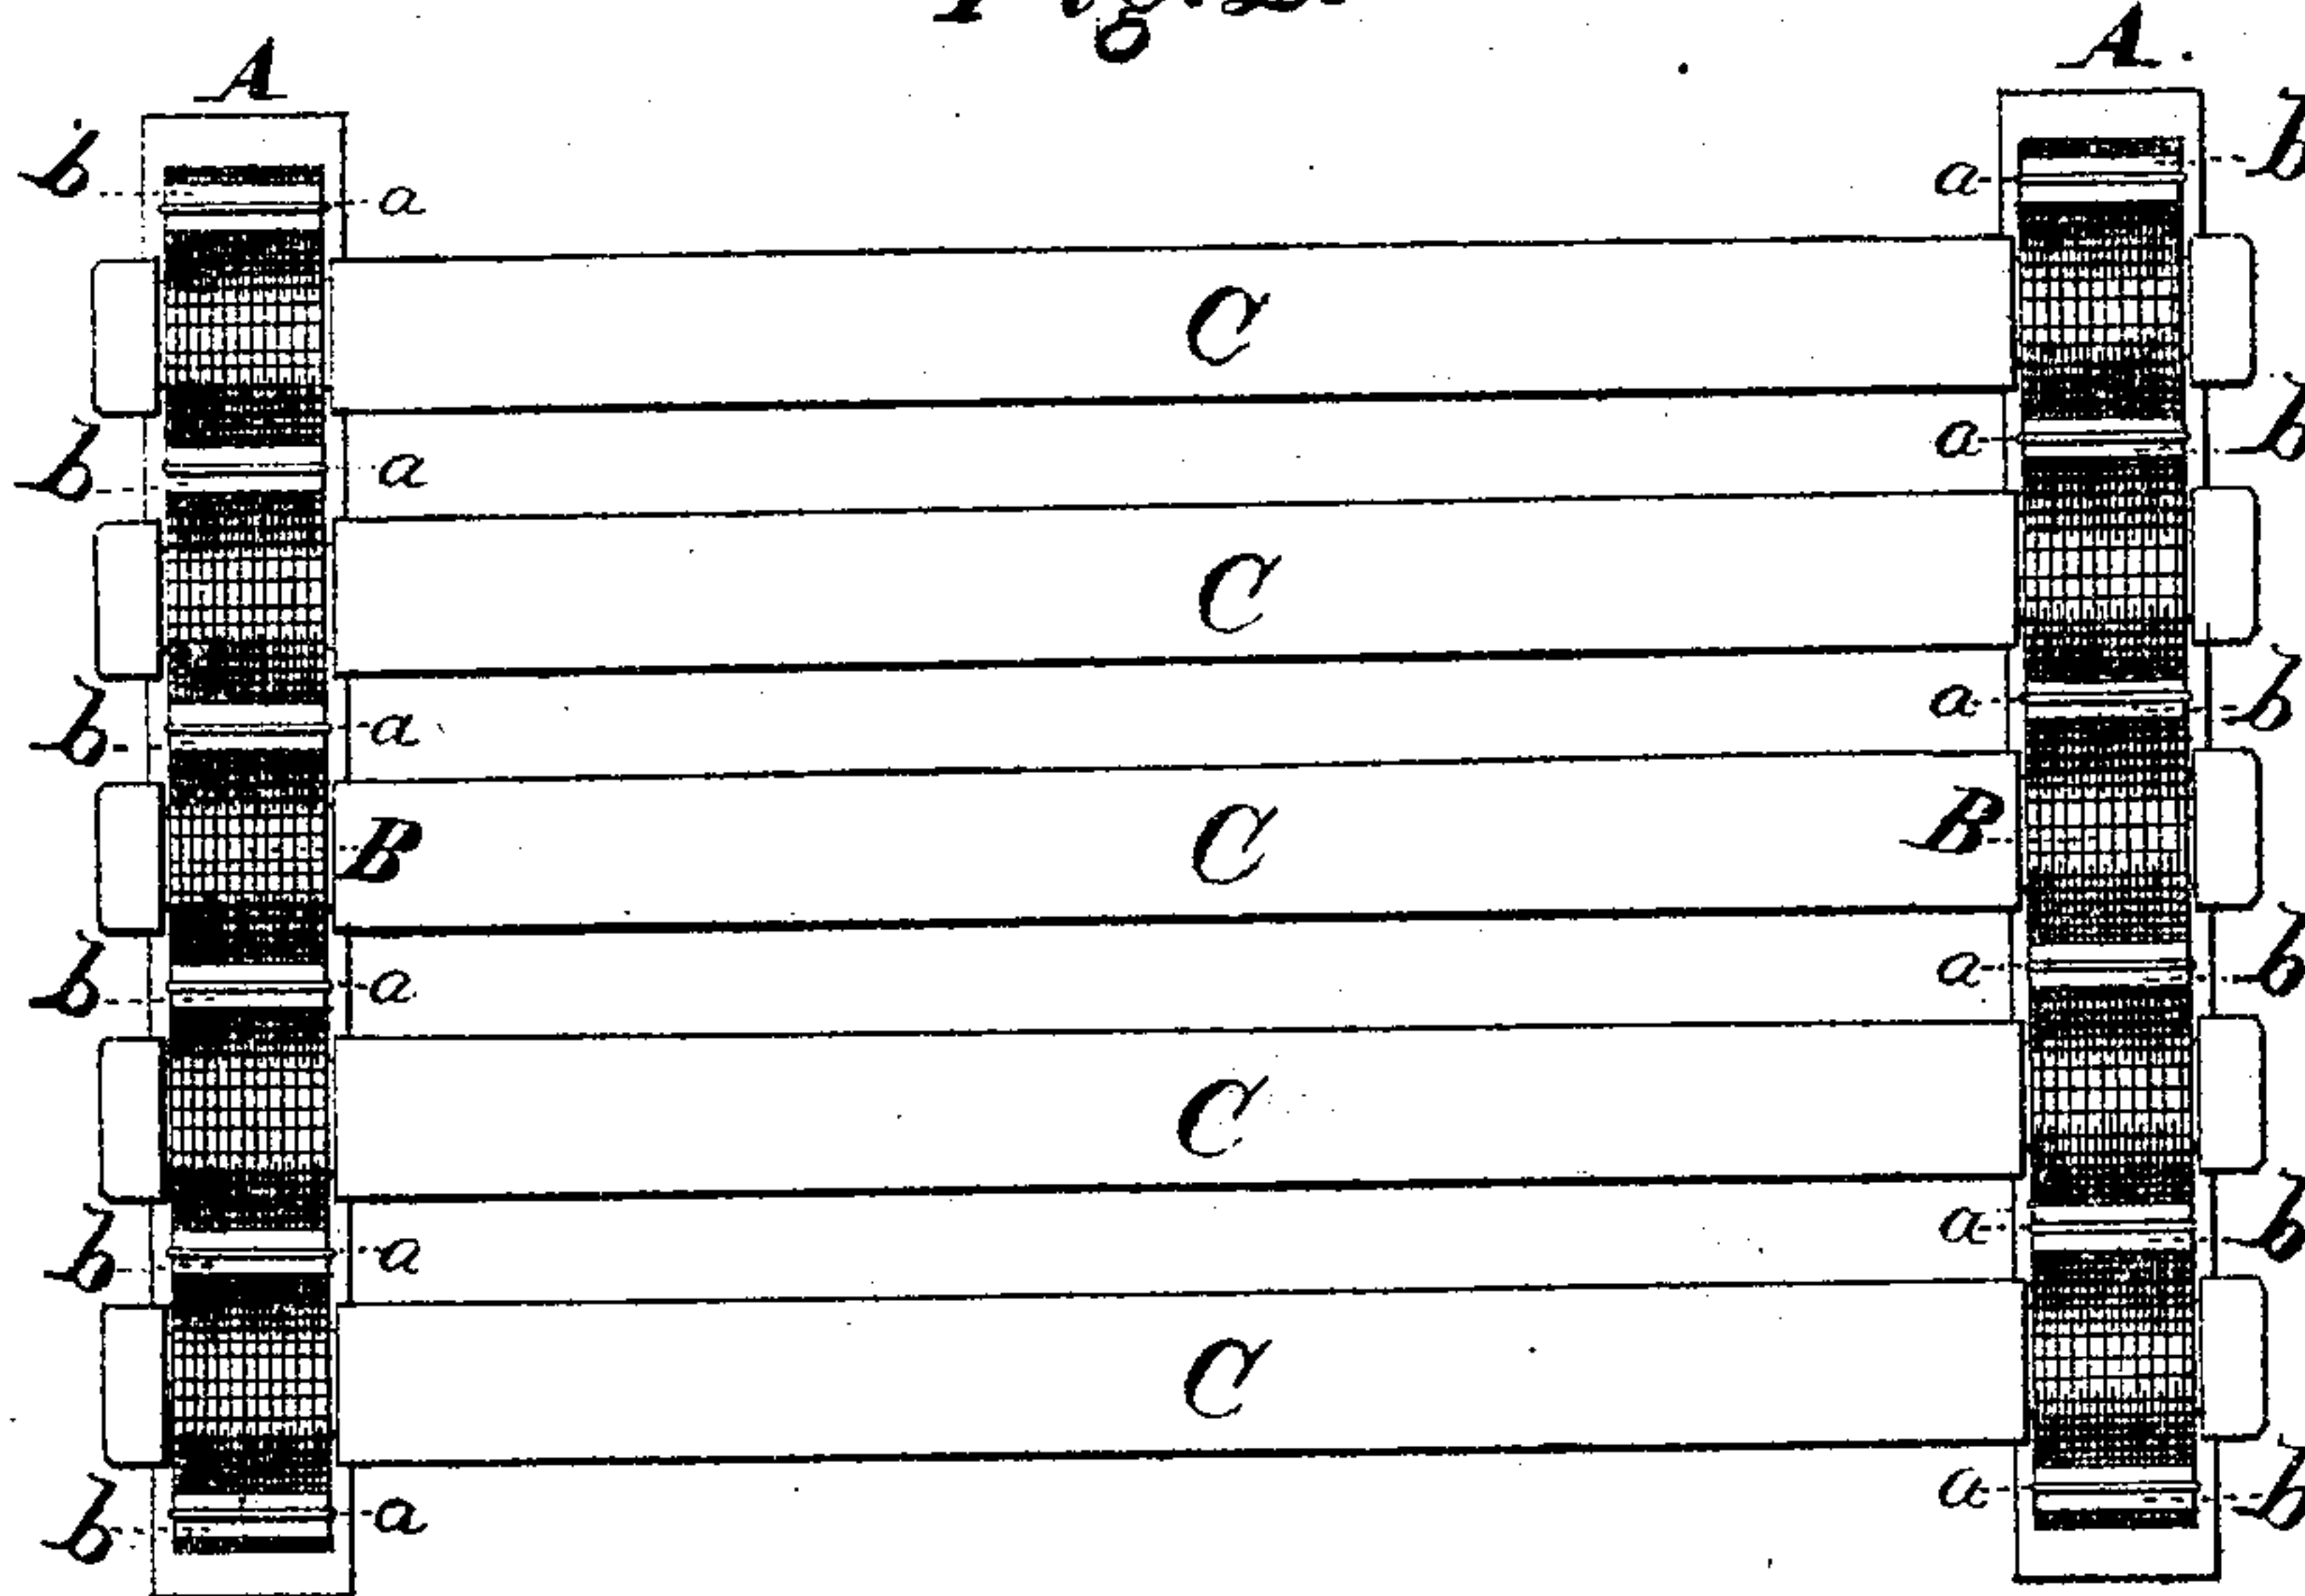 Fig. 2.
A A.
b a a b
C
b a a b
C
b a a b
C
B B
b a a b
C
b a a b
C
b a a b